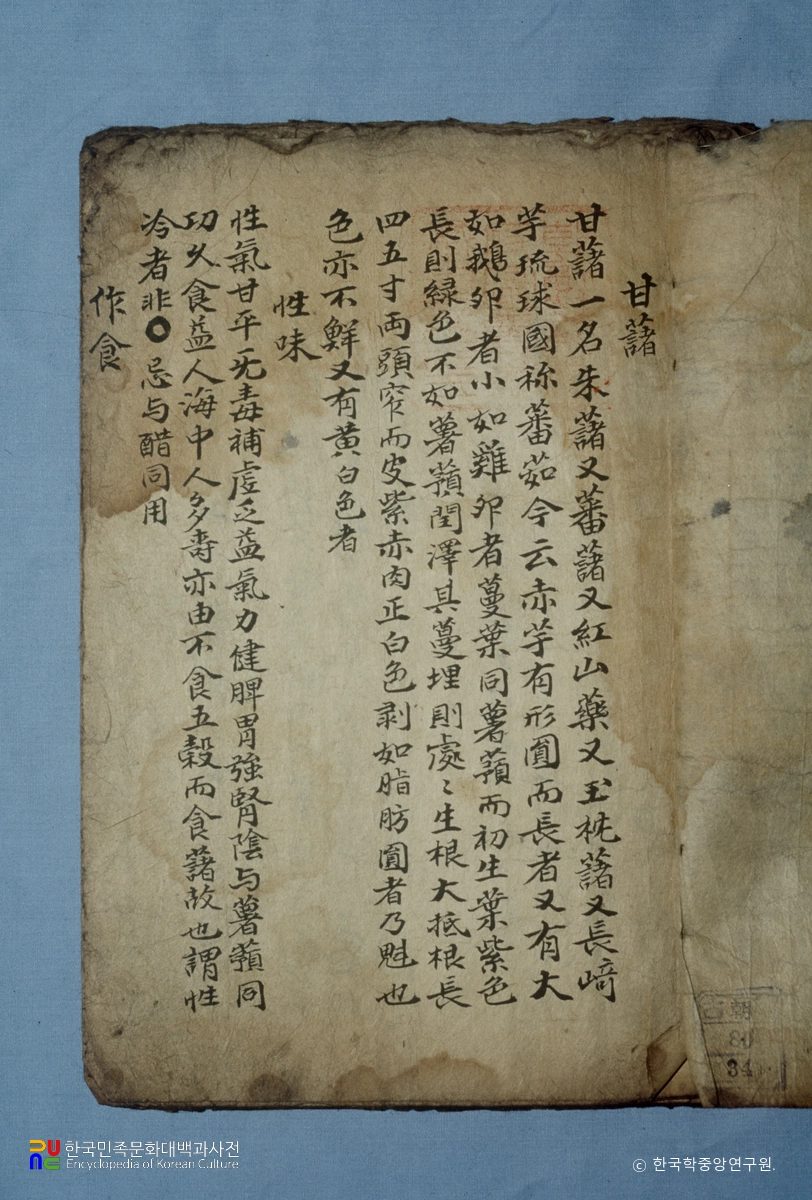 甘藷
甘藷一名朱藷又蕃藷又紅山藥又玉枕藷又長﨑
芋琉球國称蕃茹今云赤芋有形圎而長者又有大
如鵝卵者小如雞卵者蔓葉同薯蕷而初生葉紫色
長則綠色不如薯蕷閏澤其蔓埋則處〻生根大抵根長
四五寸両頭窄而皮紫赤肉正白色剥如脂肪圎者乃魁也
色亦不鮮又有黄白色者
性味
性氣甘平无毒補虛乏益氣力健脾胃強腎陰与薯蕷同
功久食益人海中人多壽亦由不食五穀而食藷故也謂性
冷者非〇忌与醋同用
作食
朝
80
34
한국민족문화대백과사전
Encyclopedia of Korean Culture
ⓒ 한국학중앙연구원.